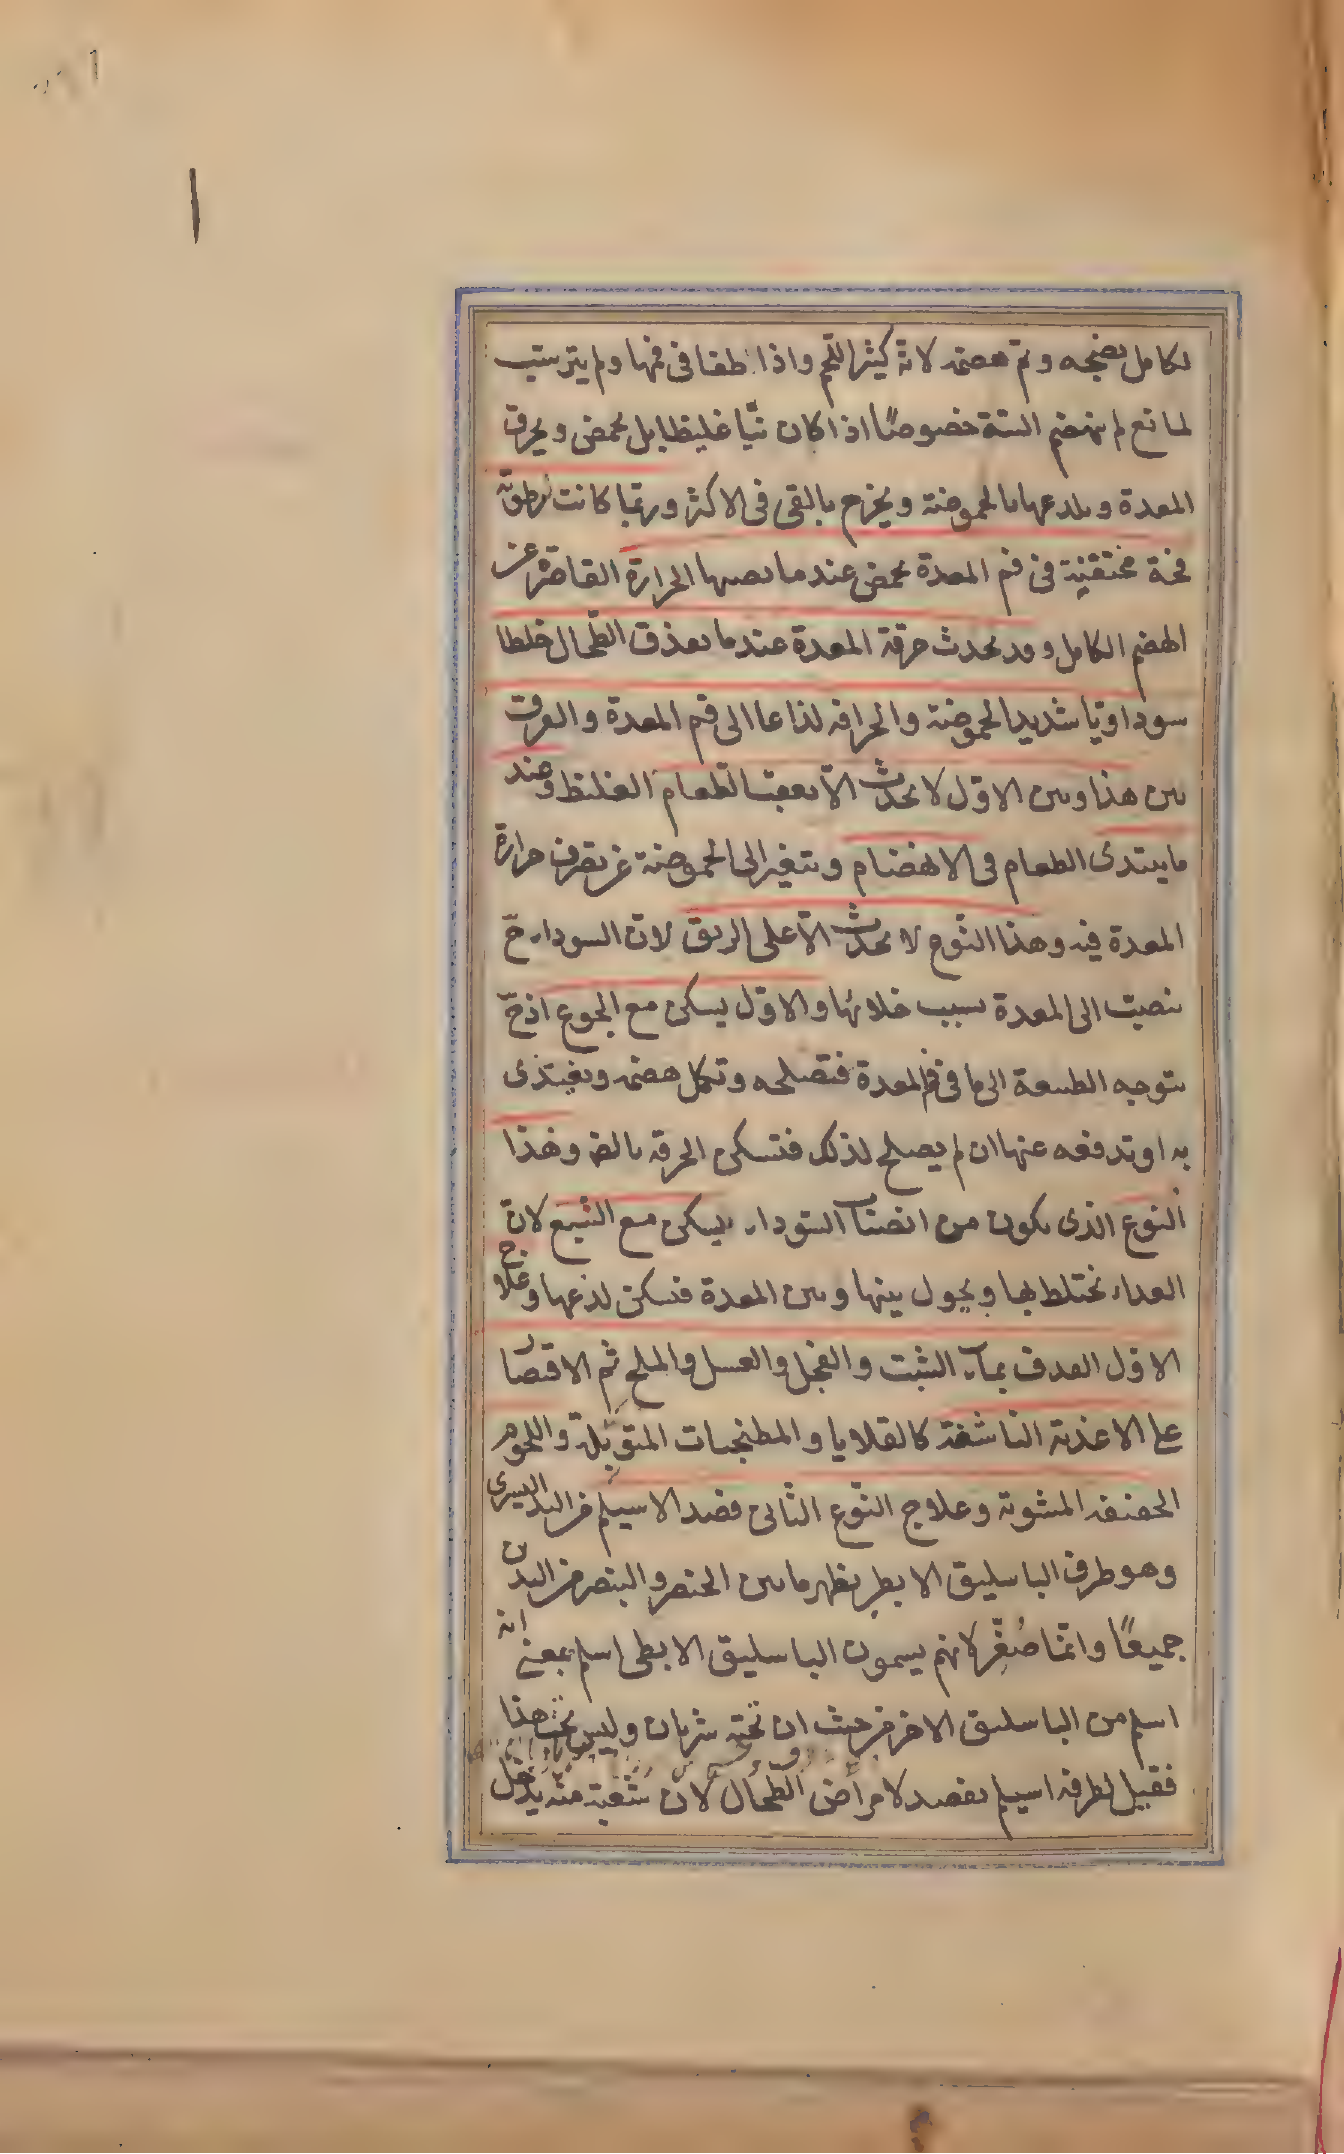 لكامل نضجه وتم هضمه لانه كثير اللحم واذا طفا فى فمها ولم يترسّب
لمانع لم ينهضم البتة خصوصًا اذا كان نيّا غليظا بل يحمض ويحرق
المعدة ويلدعها بالحموضة ويخرج بالقى فى الاكثر وربّما كانت لرطوبة
فجة محتقنة فى فم المعدة يحمض عندما يصيبها الحرارة القاصرة عن
الهضم الكامل وقد يحدث حرقة المعدة عندما يقذف الطّحال خلطا
سوداويّا شديد الحموضة والحرافه لذاعا الى فم المعدة والفرق
بين هذا وبين الاوّل لا يحدث الّا بعقب الطّعام الغليظ وعند
ما يبتدى الطعام فى الانهضام ويتغير الى الحموضة عن تصرف حرارة
المعدة فيه وهذا النّوع لا يحدث الّا على الريق لان السوداء ح
ينصبّ الى المعدة بسبب خلائها والاوّل يسكن مع الجوع اذ ح
يتوجه الطبيعة الى ما فى فم المعدة فتصلحه وتكمل هضمه ويغتذى
به او تدفعه عنها ان لم يصلح لذلك فتسكن الحرقه وهذا
النوع الذى يكون من انصباب السّوداء يسكن مع الشبع لانّ
الغداء يختلط بها ويحول بينها وبين المعدة فتسكن لذعها وعلاج
الاوّل القذف بماء الشبت والفجل والعسل والملح ثم الاقتصار
على الاغذية الناشفة كالقلايا والمطنجنات المتوبّلة واللحوم
الخفيفه المشوية وعلاج النّوع الثّانى فصد الاسيلم من اليد اليسرى
وهو طرف الباسليق الابطى يظهر ما بين الخنصر والبنصر من اليدين
جميعًا وانّما صُغّر لانهم يسمون الباسليق الابطى اسلم بمعنى انه
اسلم من الباسليق الاخر من حيث ان تحته شريان وليس تحت هذا
فقيل لطرفه اسيلم يفصد لامراض الطّحال لانّ شعبة منه يدخل